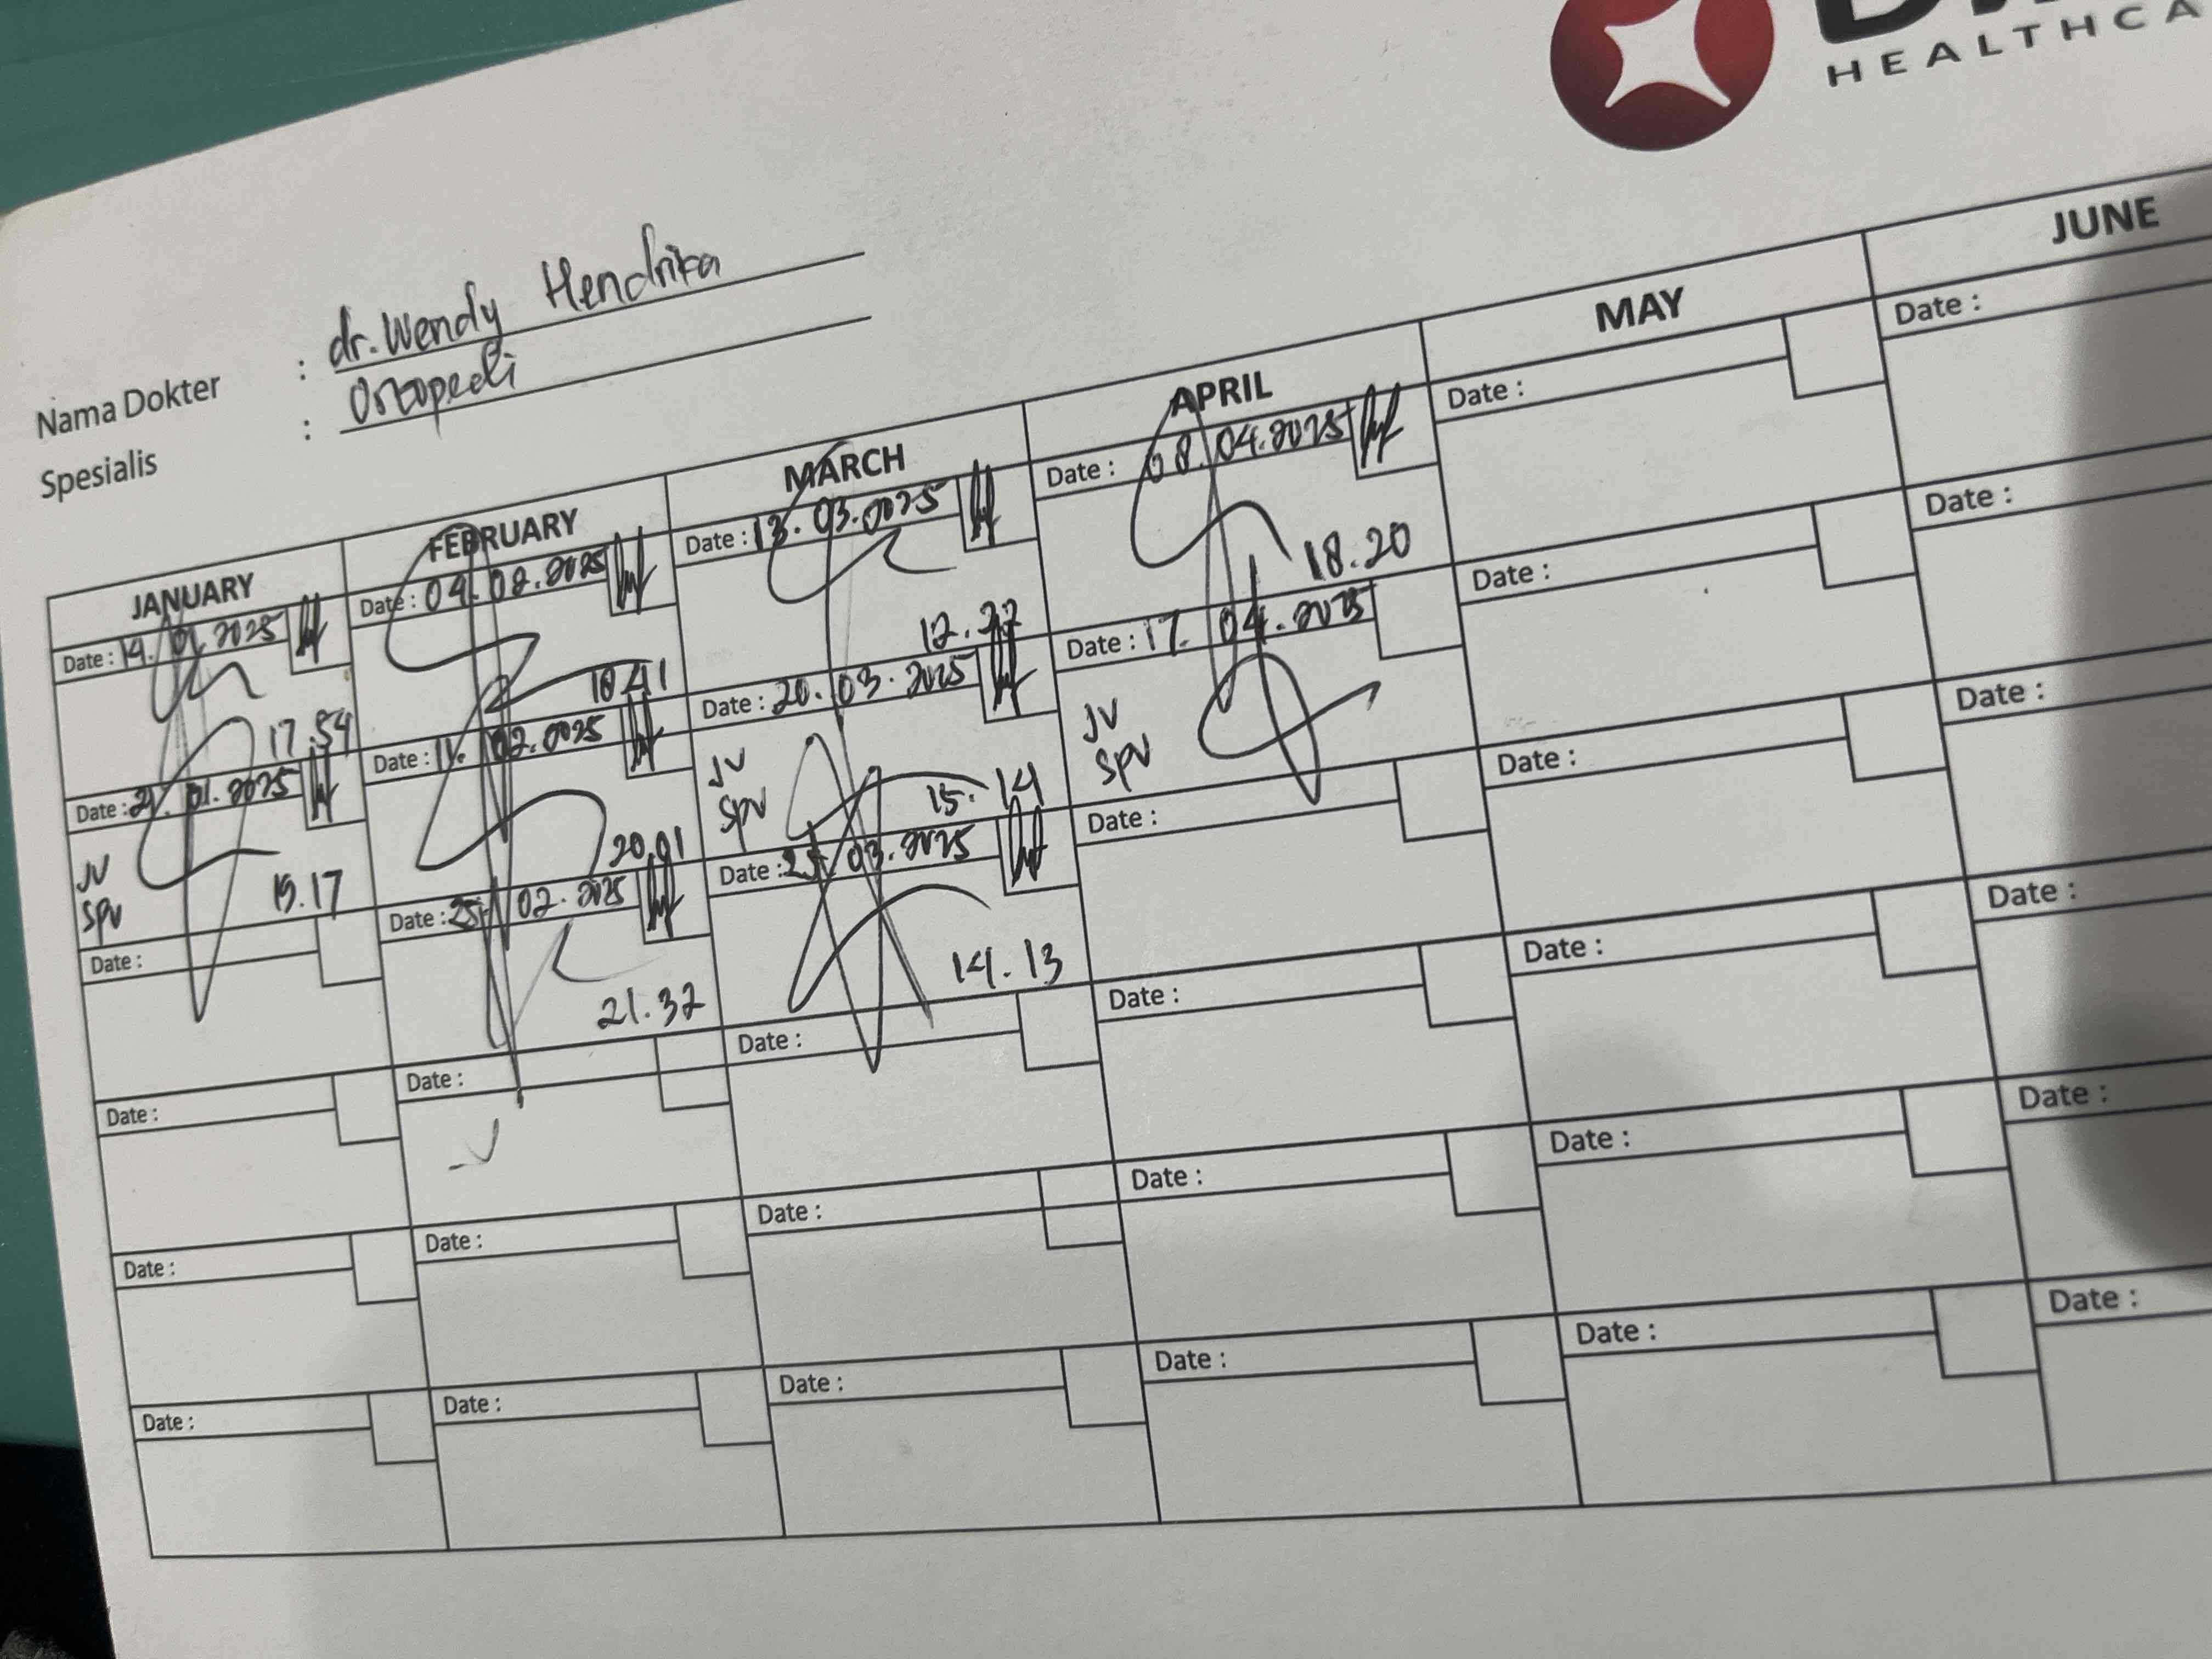 HEALTHCA
Nama Dokter : dr. Wendy Hendrika
Spesialis : Ortopedi
JANUARY
Date : 14. 01. 2025
17.54
Date : 21. 01. 2025
JV
SPV
19.17
Date :
Date :
Date :
Date :
FEBRUARY
Date : 04. 02. 2025
Date : 11. 02. 2025
20.01
Date : 25. 02. 2025
21.32
Date :
Date :
Date :
MARCH
Date : 13. 03. 2025
Date : 20. 03. 2025
JV
SPV
15.14
Date : 25. 03. 2025
14.13
Date :
Date :
Date :
APRIL
Date : 08. 04. 2025
18.20
Date : 17. 04. 2025
JV
SPV
Date :
Date :
Date :
Date :
MAY
Date :
Date :
Date :
Date :
Date :
Date :
JUNE
Date :
Date :
Date :
Date :
Date :
Date :